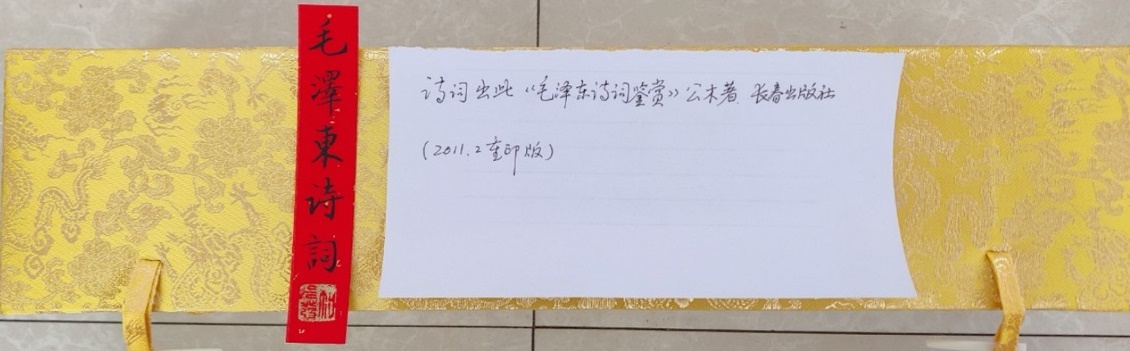 毛澤東诗詞
诗词出此《毛泽东诗词鉴赏》公木著 长春出版社
(2011.2重印版)